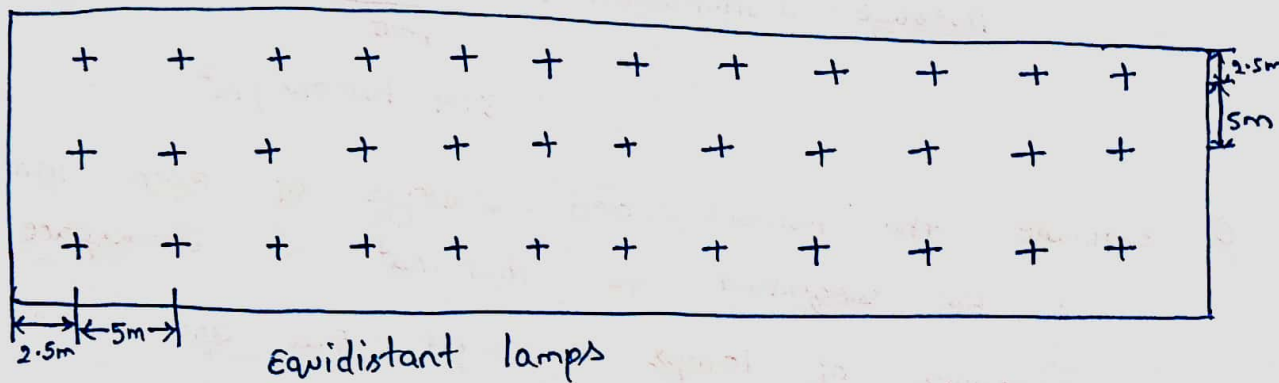 2.5m
5m
2.5m
5m
Equidistant lamps